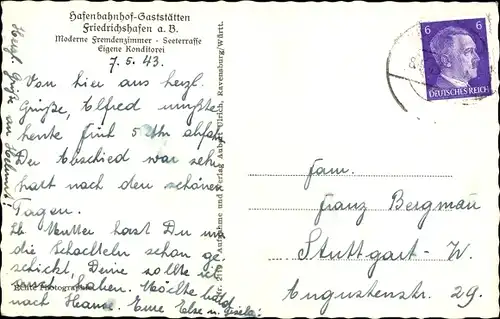 Hafenbahnhof-Gaststätten
Friedrichshafen a. B.
Moderne Fremdenzimmer - Seeterrasse
Eigene Konditorei
7.5.43.
Von hier aus herzl.
Grüße, Alfred mußte
heute früh 5 Uhr abfahr.
Der Abschied war sehr
hart nach den schönen
Tagen.
Lb. Mutter hast Du nun
die Schachteln schon ge-
schickt, Deine sollte ich
haben. Möchte bald
nach Hause. Eure Else u. Gisela.
Herzl. Grüße an Hellmut
Echte Photographie
Nr. 2119 Aufnahme und Verlag Ulrich, Ravensburg/Württ.
6 6
DEUTSCHES REICH
Fam.
Franz Bergmau
Stuttgart-W.
Augustenstr. 29.